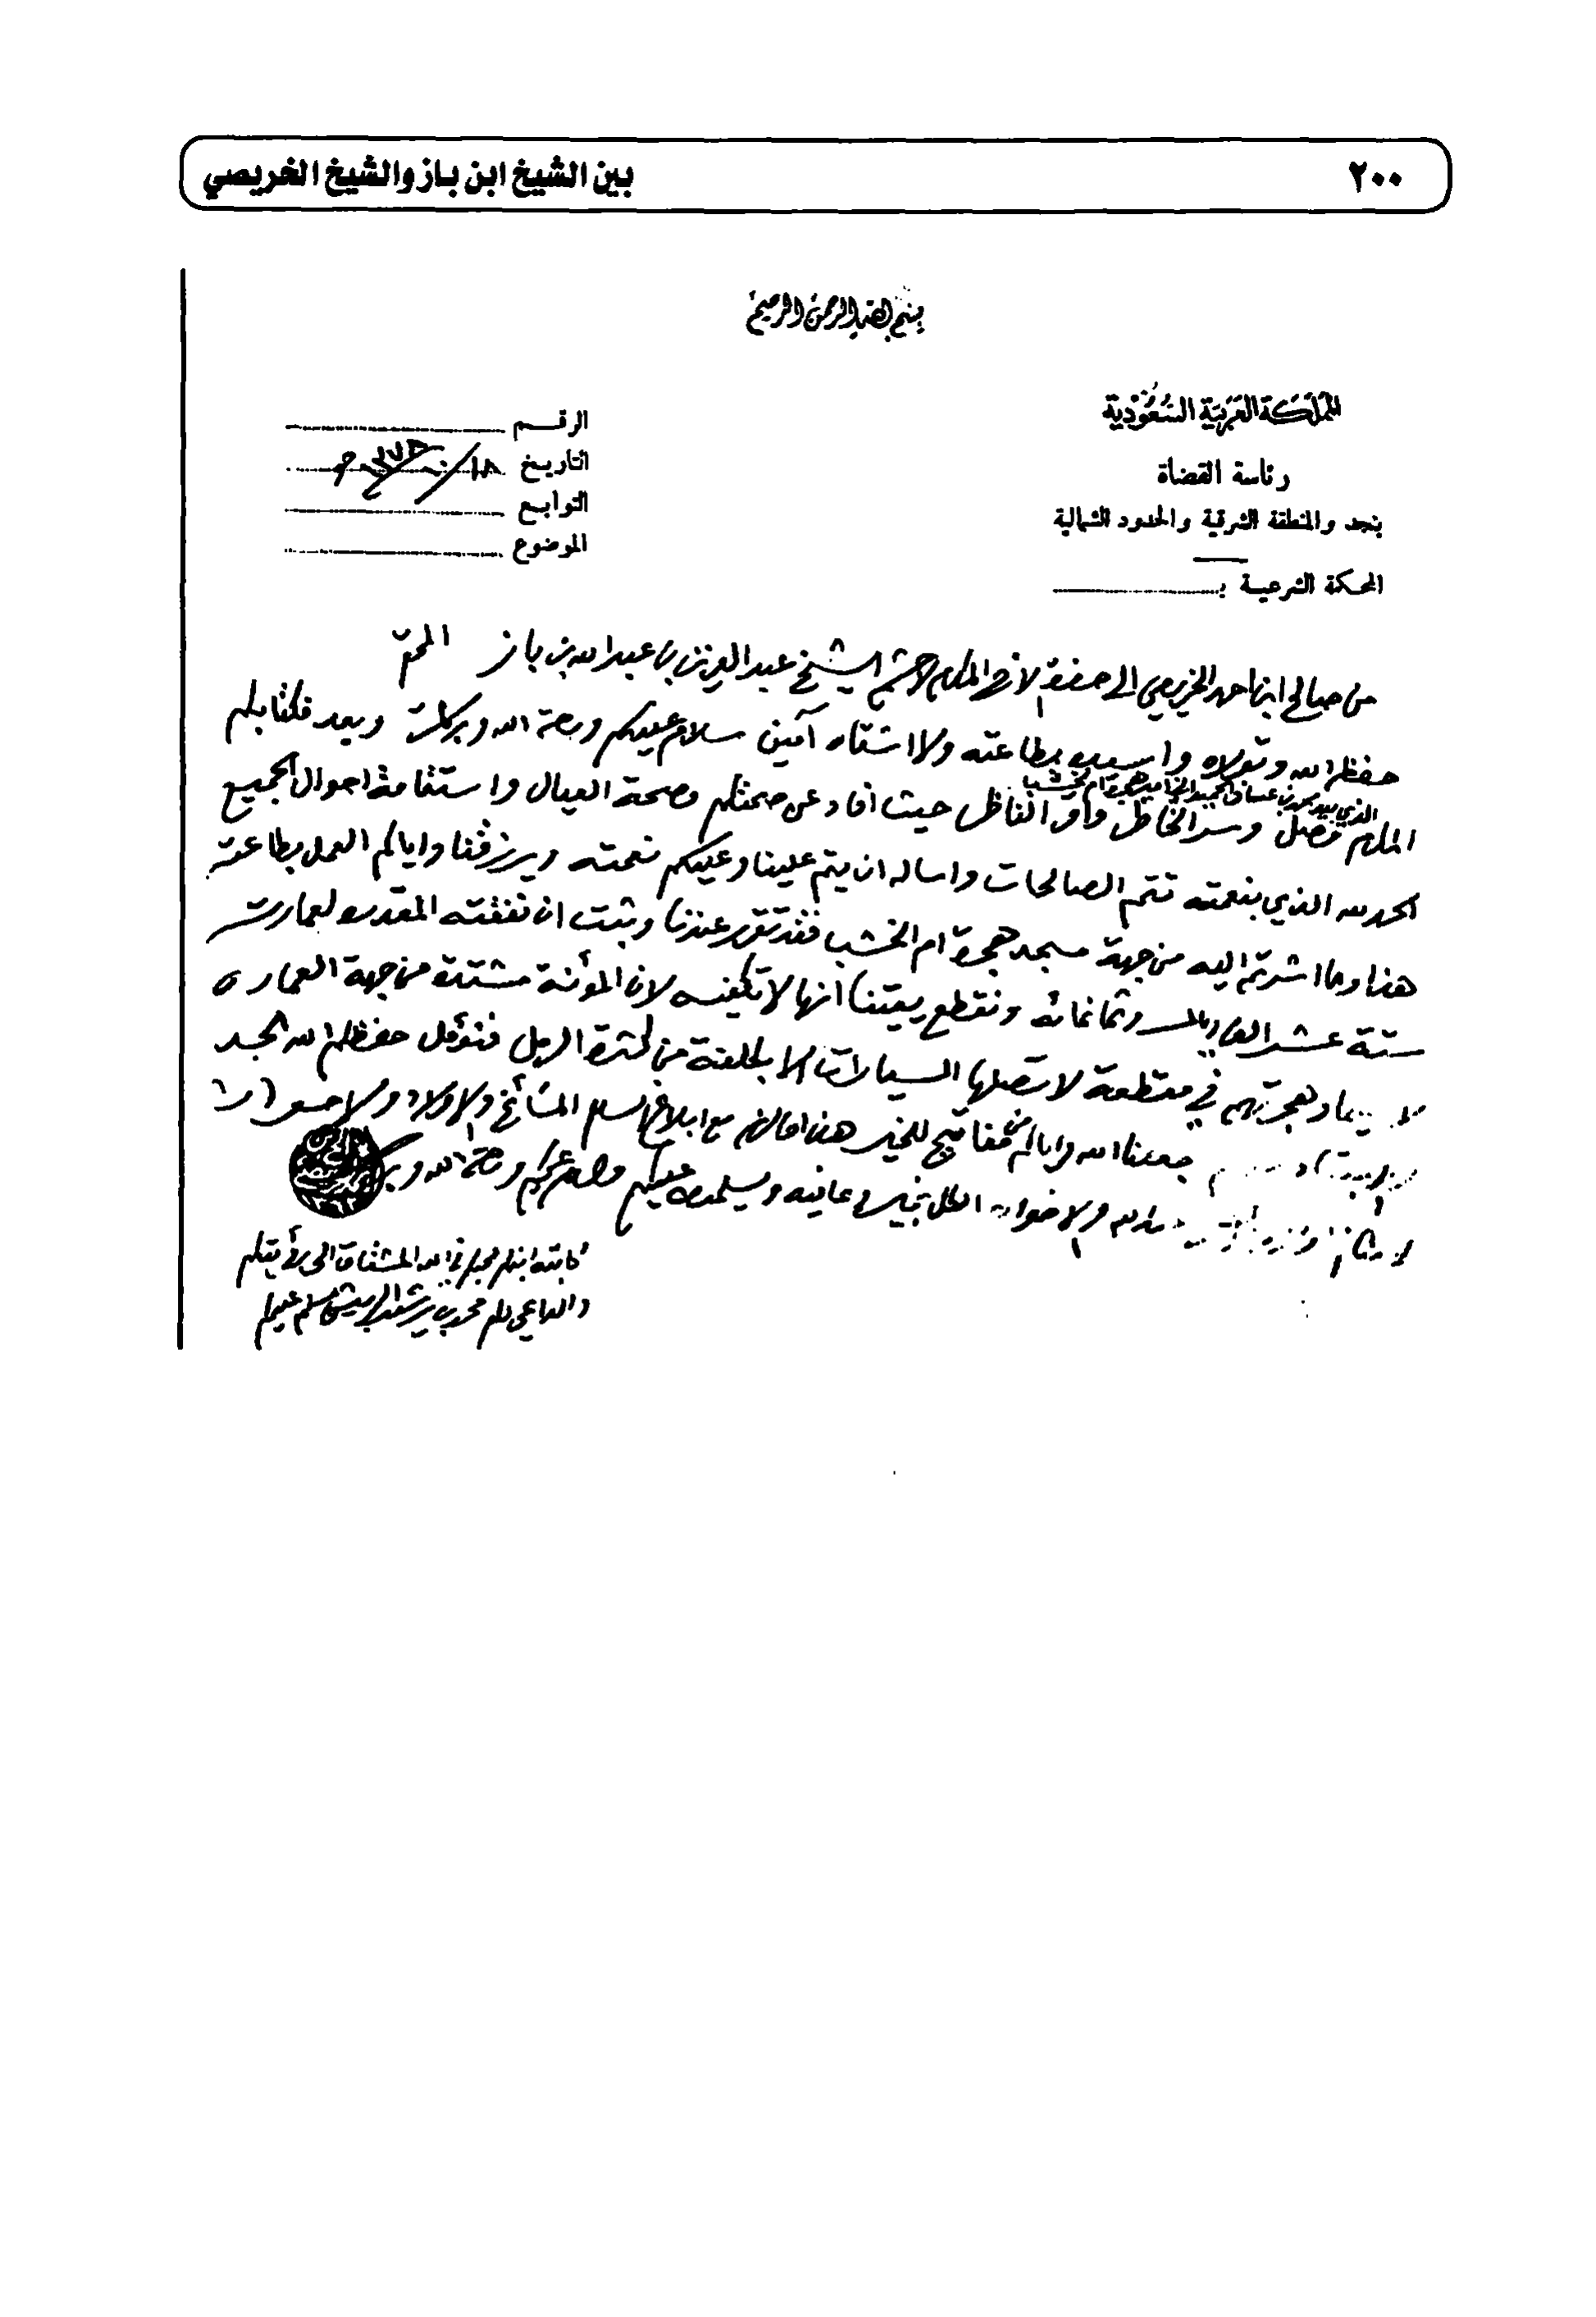 ٢٠٠
بين الشيخ ابن باز والشيخ الخريصي
بسم الله الرحمن الرحيم
المملكة العربية السعودية
رئاسة القضاة
بنجد والمنطقة الشرقية والحدود الشمالية
المحكمة الشرعية بـ
الرقم
التاريخ ١٨/
التوابع
الموضوع
من صالح ابن احمد الخريصي الى حضرة الاخ المكرم الاحشم الشيخ عبد العزيز بن عبد الله بن باز المحترم
حفظه الله وتولاه واسعده بطاعته ولا اشقاه آمين سلام عليكم ورحمة الله وبركاته وبعد فكتابكم
الذي بيد محمد بن عساف هجرة ام الخشب
المكرم وصل وسر الخاطر وأقر الناظر حيث افاد عن صحتكم وصحة العيال واستقامة احوال الجميع
الحمد لله الذي بنعمته تتم الصالحات واساله ان يتم علينا وعليكم نعمته ويرزقنا واياكم العمل بطاعته
هذا وما اشرتم اليه من جهة مسجد هجرة ام الخشب فقد تقرر عندنا وثبت ان نفقته المقدره لعمارته
ستة عشر الف ريال وثمانمائه ونقطع يقينا انها لا تكفيه لان المؤنة مشتدة من جهة العماره
لا سيما وهجرتهم في منقطعة لا تصلها السيارات الا بكلفة من كثرة الرمل فنؤمل حفظكم الله
جعلنا الله واياكم من مفاتيح للخير هذا مالزم مع ابلاغ السلام المشائخ والاولاد
والاخوان الكل بخير وعافيه ويسلمون عليكم والسلام عليكم ورحمة الله وبركاته
كاتبه ابنكم محبكم في الله المشتاق الى رؤيتكم
والداعي لكم محمد بن رشد الربيش يسلم عليكم